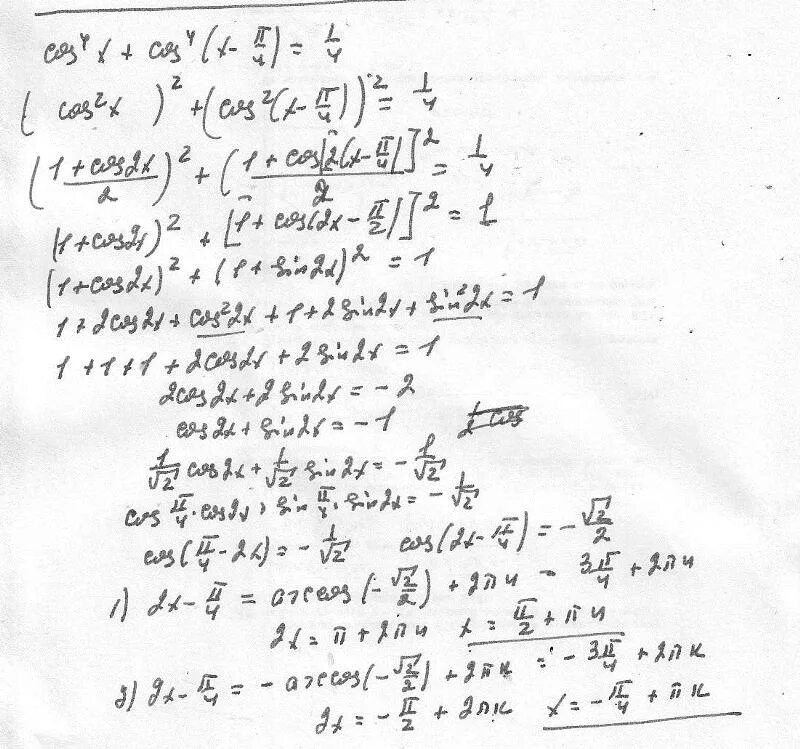 cos⁴x + cos⁴(x - π/4) = 1/4
( cos²x )² + (cos²(x - π/4))² = 1/4
((1 + cos2x)/2)² + ((1 + cos[2(x - π/4)]/2]² = 1/4
(1 + cos2x)² + [1 + cos(2x - π/2)]² = 1
(1 + cos2x)² + (1 + sin2x)² = 1
1 + 2cos2x + cos²2x + 1 + 2sin2x + sin²2x = 1
1 + 1 + 1 + 2cos2x + 2sin2x = 1
2cos2x + 2sin2x = -2
cos2x + sin2x = -1
1/√2 cos2x + 1/√2 sin2x = -1/√2
cos π/4 · cos2x + sin π/4 · sin2x = -1/√2
cos(π/4 - 2x) = -1/√2 cos(2x - π/4) = -√2/2
1) 2x - π/4 = arccos(-√2/2) + 2πn = 3π/4 + 2πn
2x = π + 2πn x = π/2 + πn
2) 2x - π/4 = -arccos(-√2/2) + 2πk = -3π/4 + 2πk
2x = -π/2 + 2πk x = -π/4 + πk